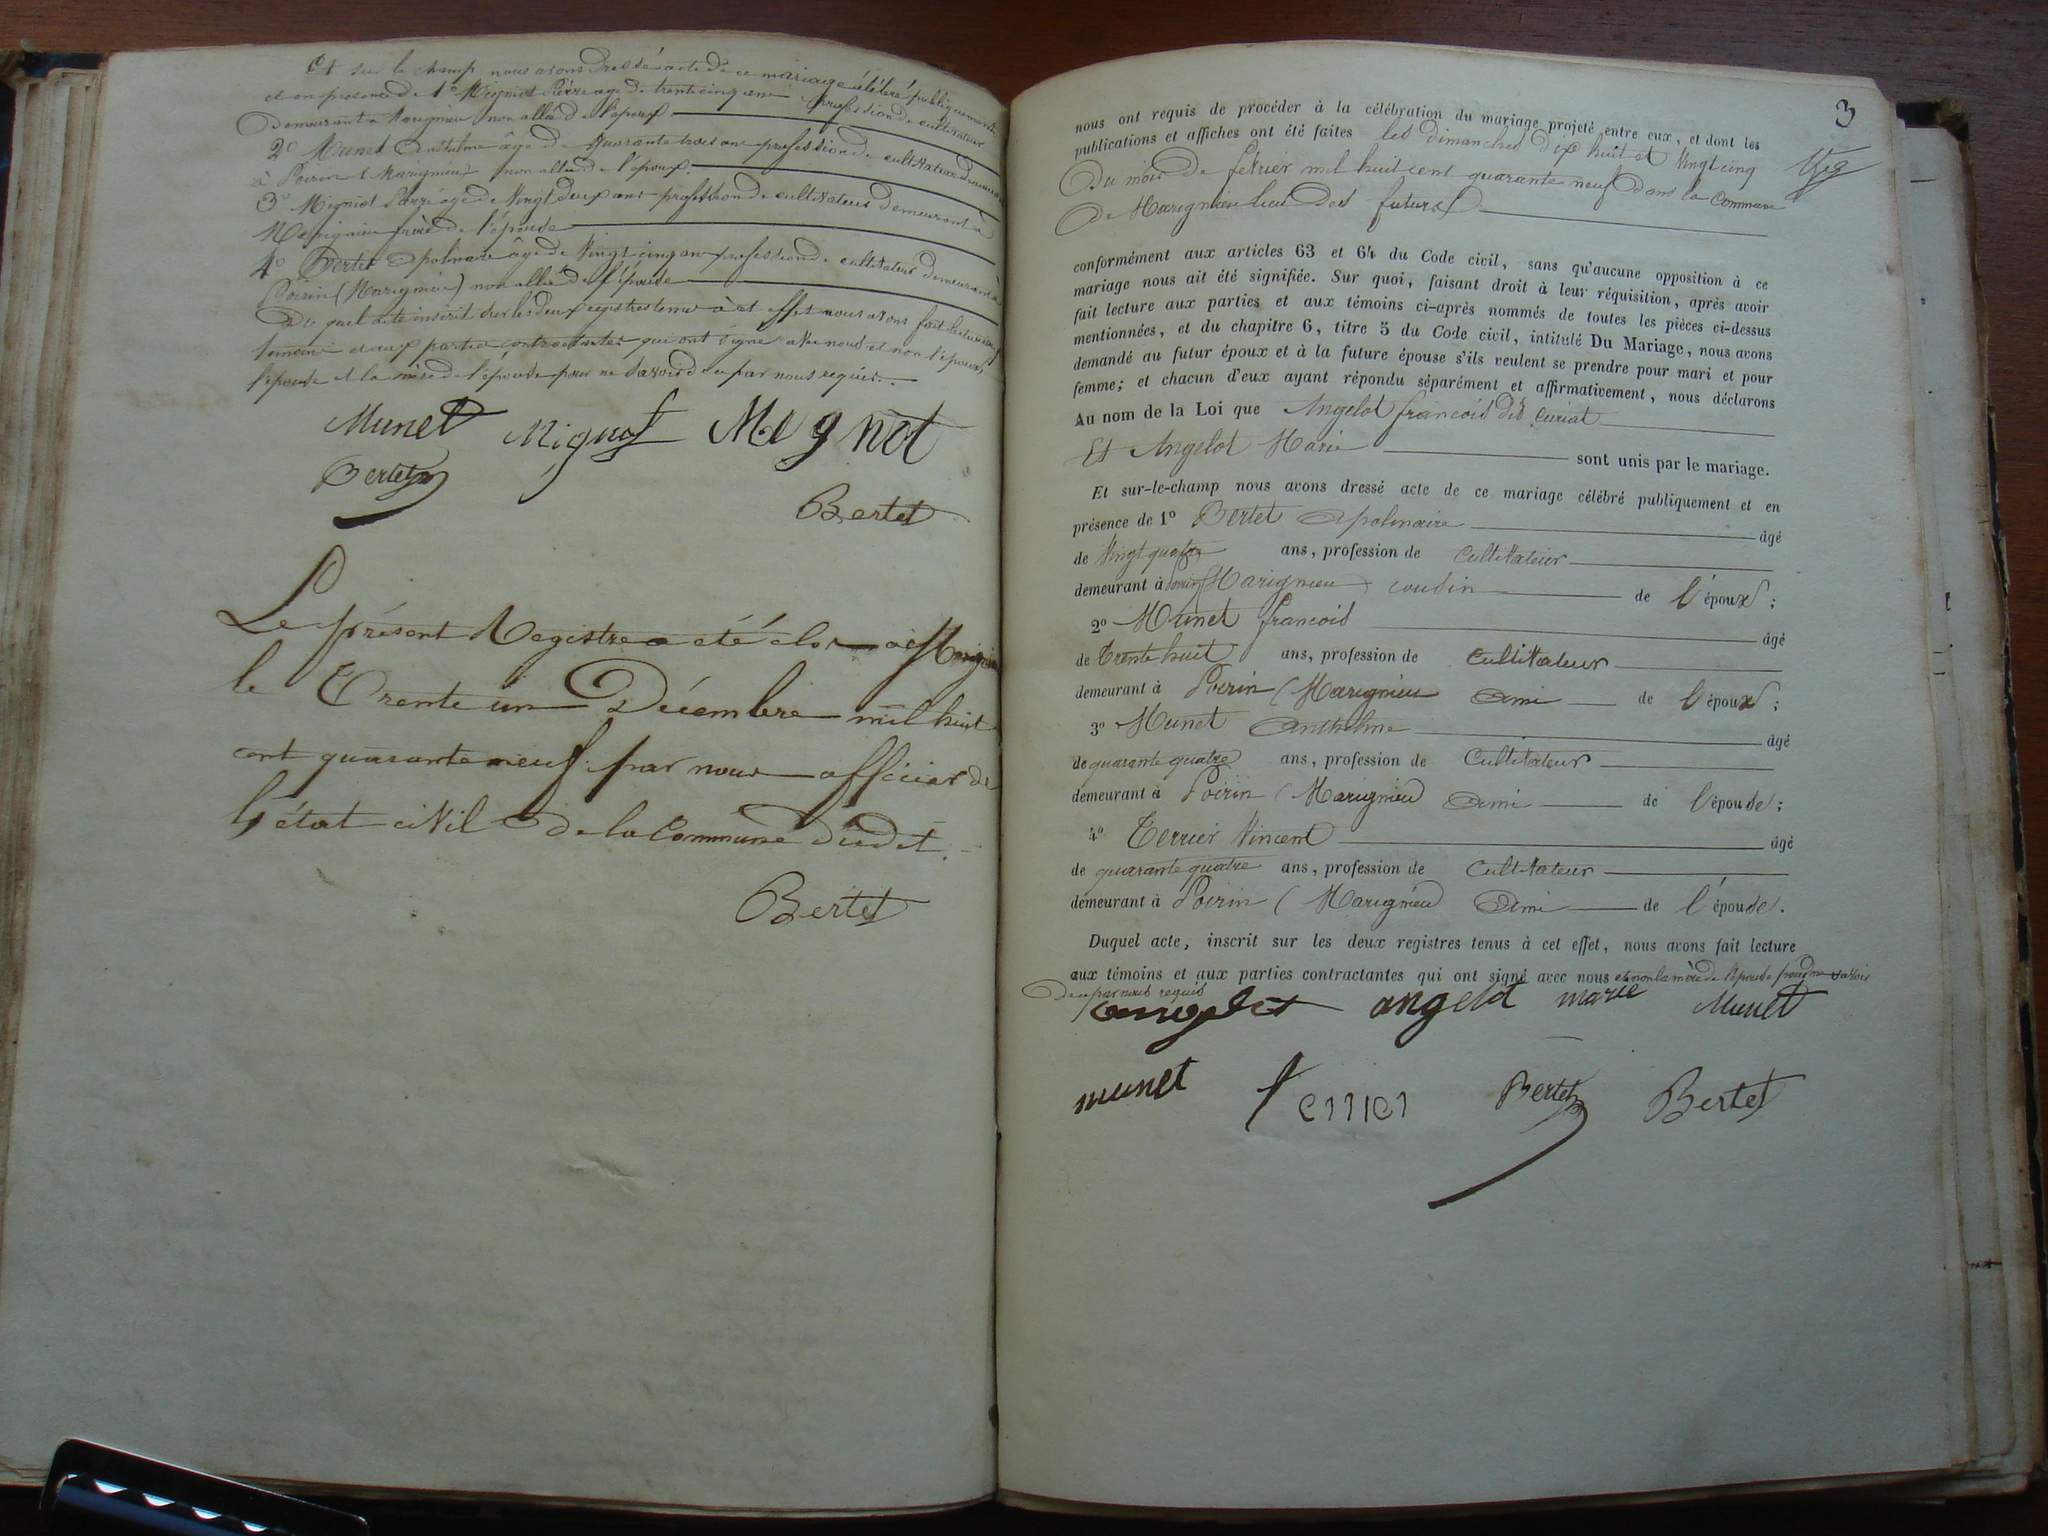 Et sur le champ nous avons dressé acte de ce mariage célébré publiquement
et en présence de 1º Mignot Pierre âgé de trente cinq ans profession de cultivateur
demeurant à Marignieu non allié de l'époux
2º Munet Anthelme âgé de quarante trois ans profession de cultivateur demeurant
à Poirin (Marignieu) non allié de l'époux.
3º Mignot Pierre âgé de Vingt deux ans profession de cultivateur demeurant à
Marignieu frère de l'épouse
4º Bertet Apolinaire âgé de Vingt cinq ans profession de cultivateur demeurant à
Poirin (Marignieu) non allié de l'épouse
Du quel acte inscrit sur les deux registres tenus à cet effet nous avons fait lecture aux
temoins et aux parties contractantes qui ont signé avec nous et non l'époux,
l'épouse et la mère de l'épouse pour ne savoir de ce par nous requis.
Munet Mignot Mignot
Bertet
Bertet
Le présent Registre a été clos à Marignieu
le Trente un Décembre mil huit
cent quarante neuf par nous officier de
l'état civil de la Commune dudit.
Bertet
3
nous ont requis de procéder à la célébration du mariage projeté entre eux, et dont les
publications et affiches ont été faites les dimanches dix huit et Vingt cinq
Du mois de février mil huit cent quarante neuf dans la Commune
de Marignieu lieu des futurs
conformément aux articles 63 et 64 du Code civil, sans qu'aucune opposition à ce
mariage nous ait été signifiée. Sur quoi, faisant droit à leur réquisition, après avoir
fait lecture aux parties et aux témoins ci-après nommés de toutes les pièces ci-dessus
mentionnées, et du chapitre 6, titre 5 du Code civil, intitulé Du Mariage, nous avons
demandé au futur époux et à la future épouse s'ils veulent se prendre pour mari et pour
femme; et chacun d'eux ayant répondu séparément et affirmativement, nous déclarons
Au nom de la Loi que Angelot francois dit Curiat
Et Angelot Marie sont unis par le mariage.
Et sur-le-champ nous avons dressé acte de ce mariage célébré publiquement et en
présence de 1º Bertet Apolinaire âgé
de Vingt quatre ans, profession de Cultivateur
demeurant à Poirin (Marignieu) cousin de l'époux;
2º Munet francois âgé
de Trente huit ans, profession de Cultivateur
demeurant à Poirin (Marignieu Ami de l'époux;
3º Munet Anthelme âgé
de quarante quatre ans, profession de Cultivateur
demeurant à Poirin (Marignieu Ami de l'épouse;
4º Terrier Vincent âgé
de quarante quatre ans, profession de Cultivateur
demeurant à Poirin (Marignieu Ami de l'épouse.
Duquel acte, inscrit sur les deux registres tenus à cet effet, nous avons fait lecture
aux témoins et aux parties contractantes qui ont signé avec nous et non la mère de l'épouse pour ne savoir
de ce par nous requis
angelot angelot marie Munet
munet Terrier Bertet Bertet